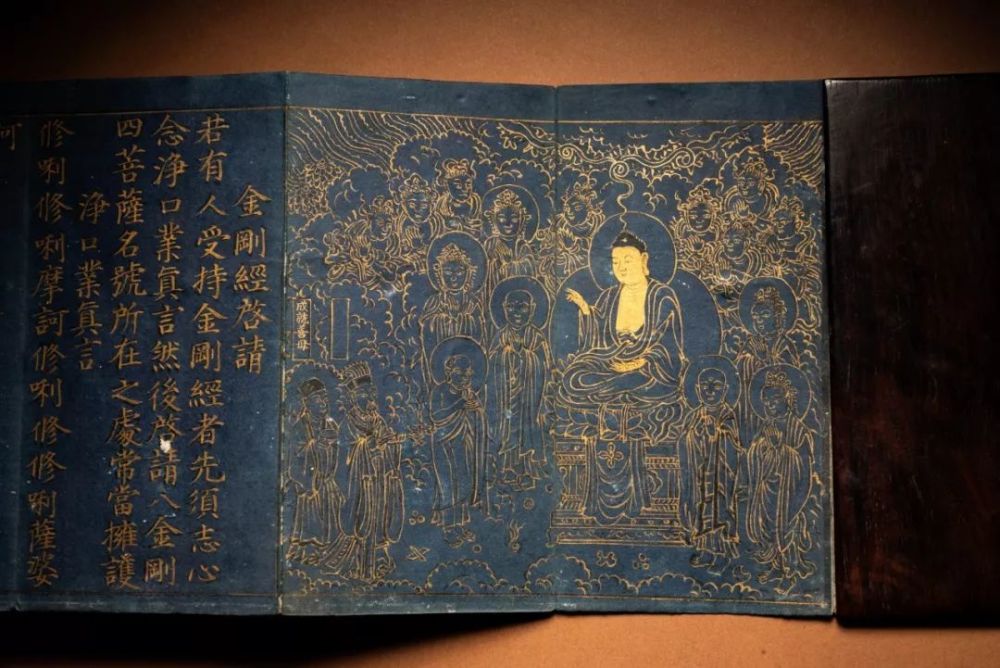 金剛經啓請
若有人受持金剛經者先須志心
念淨口業眞言然後啓請八金剛
四菩薩名號所在之處常當擁護
淨口業眞言
修唎修唎摩訶修唎修修唎薩婆
訶